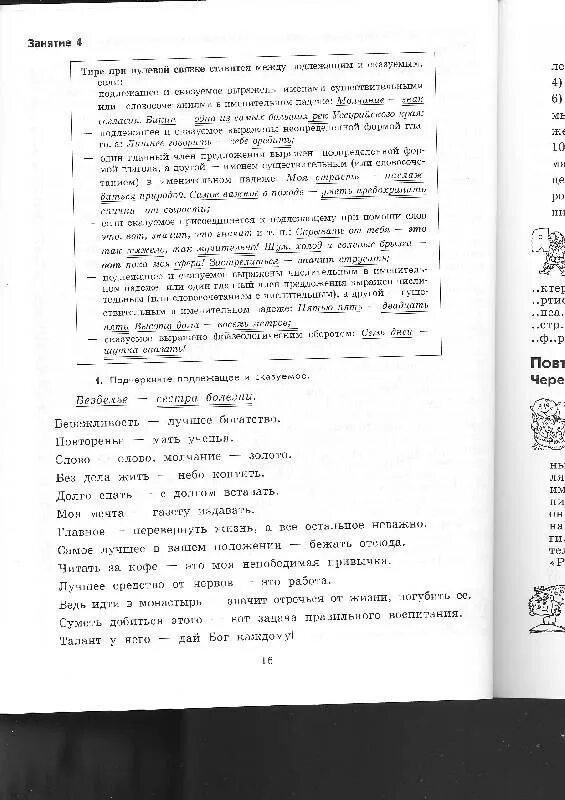 Занятие 4
Тире при нулевой связке ставится между подлежащим и сказуемым,
если:
подлежащее и сказуемое выражены именами существительными
или словосочетаниями в именительном падеже: Молчание — знак
согласия. Бикин — одна из самых больших рек Уссурийского края;
— подлежащее и сказуемое выражены неопределенной формой гла-
гола: Лишнее говорить — себе вредить;
— один главный член предложения выражен неопределенной фор-
мой глагола, а другой — именем существительным (или словосоче-
танием) в именительном падеже: Моя страсть — наслаж-
даться природой. Самое важное в походе — уметь предохранить
спички от сырости;
— если сказуемое присоединяется к подлежащему при помощи слов
это, вот, значит, это значит и т. п.: Скрывать от тебя — это
так тяжело, так мучительно! Шум, холод и соленые брызги —
вот пока моя сфера! Застрелиться — значит струсить;
— подлежащее и сказуемое выражены числительным в именитель-
ном падеже или один главный член предложения выражен числи-
тельным (или словосочетанием с числительным), а другой — суще-
ствительным в именительном падеже: Пятью пять — двадцать
пять. Высота дома — восемь метров;
— сказуемое выражено фразеологическим оборотом: Семь дней —
шутка сказать!
1. Подчеркните подлежащее и сказуемое.
Безделье — сестра болезни.
Бережливость — лучшее богатство.
Повторенье — мать ученья.
Слово — олово, молчание — золото.
Без дела жить — небо коптить.
Долго спать — с долгом вставать.
Моя мечта — газету издавать.
Главное — перевернуть жизнь, а все остальное неважно.
Самое лучшее в вашем положении — бежать отсюда.
Читать за кофе — это моя непобедимая привычка.
Лучшее средство от нервов — это работа.
Ведь идти в монастырь — значит отречься от жизни, погубить ее.
Суметь добиться этого — вот задача правильного воспитания.
Талант у него — дай Бог каждому!
16
4)
6)
10
..ктер
..ртис
..пса.
..стр.
..ф..р
Повт
Чере
ны
ля
им
пи
он
на
ги.
тел
«Р